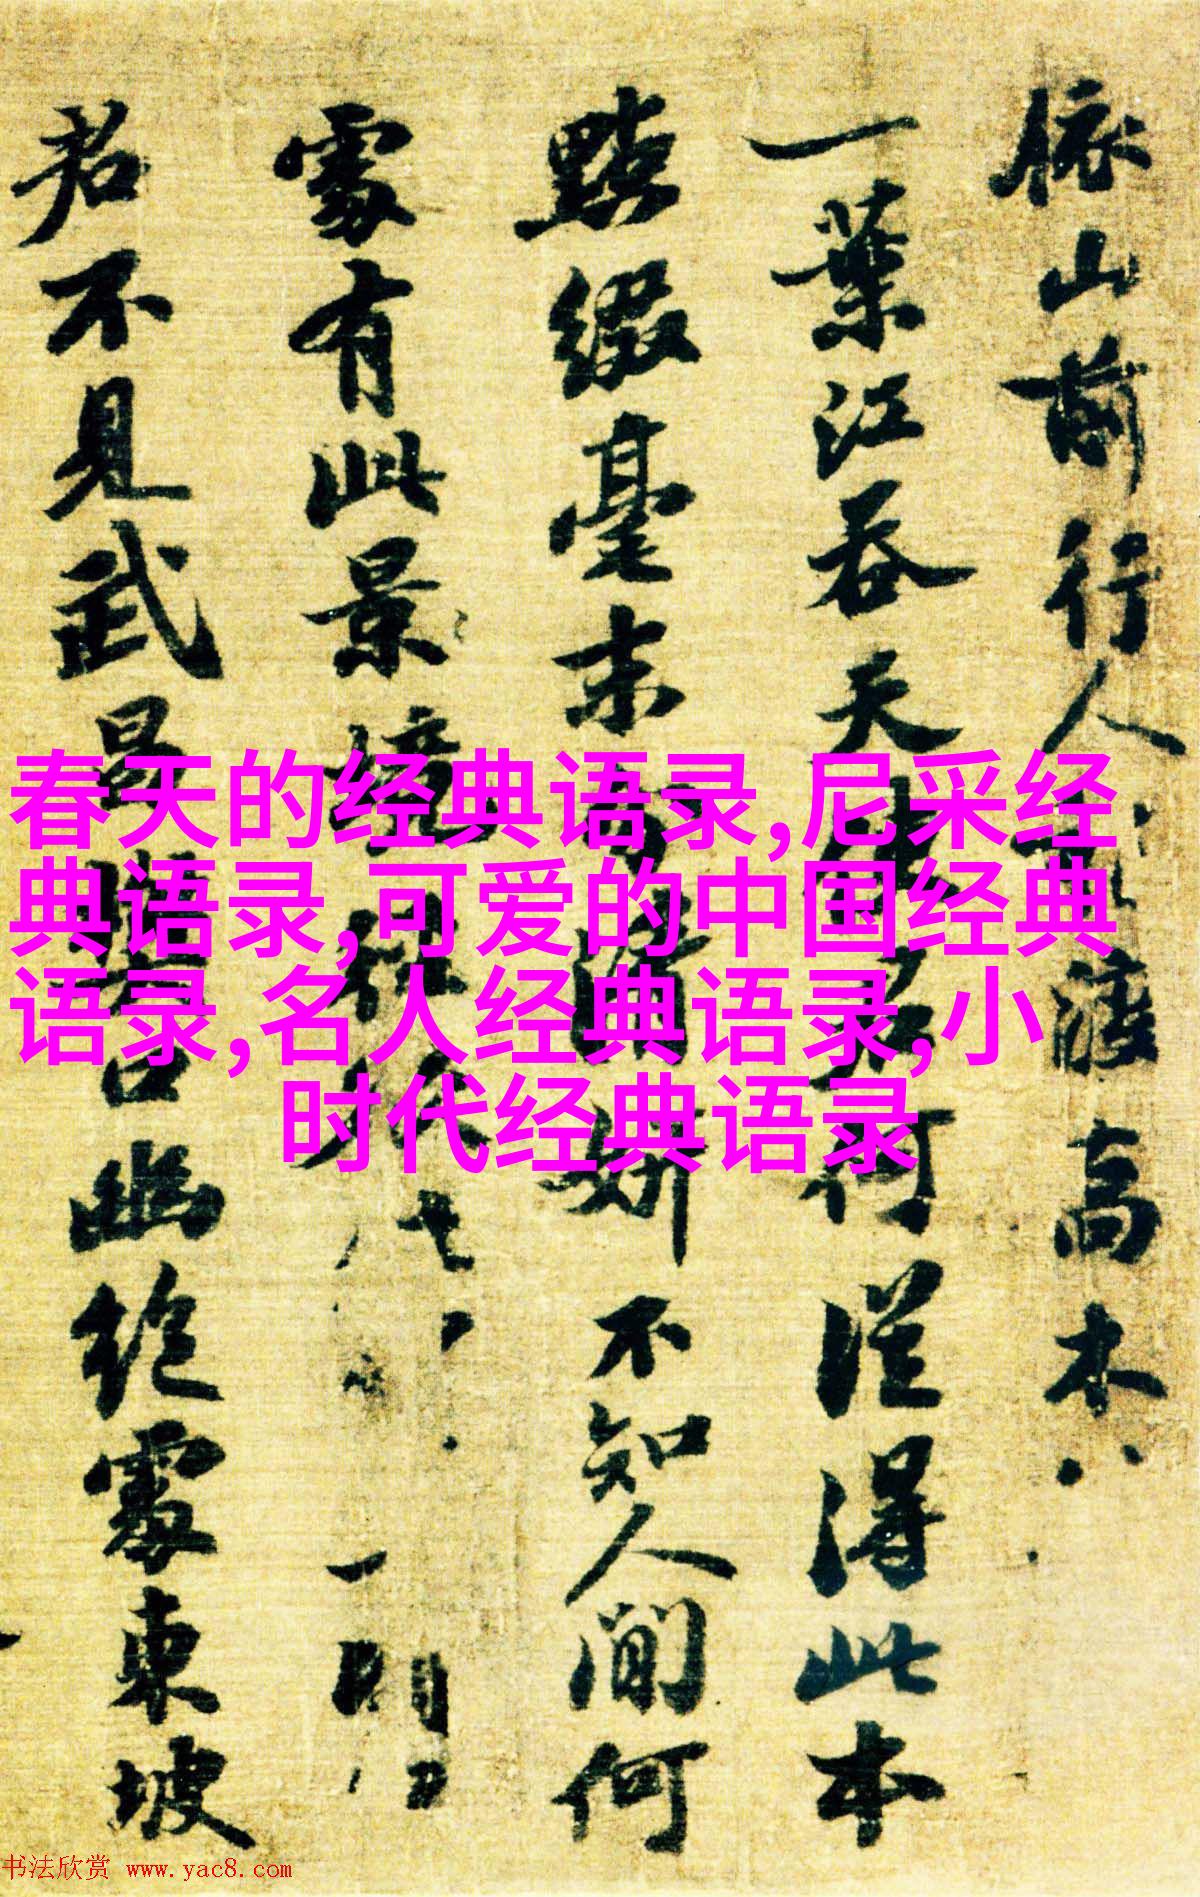 依山前行人稍渡高木八
一葉江吞天使君何從得此本
點綴毫末分清妍不知人間何
處有此景徑
君不見武昌樊口幽絕處東坡
春天的经典语录,尼采经
典语录,可爱的中国经典
语录,名人经典语录,小
时代经典语录
书法欣赏 www.yac8.com